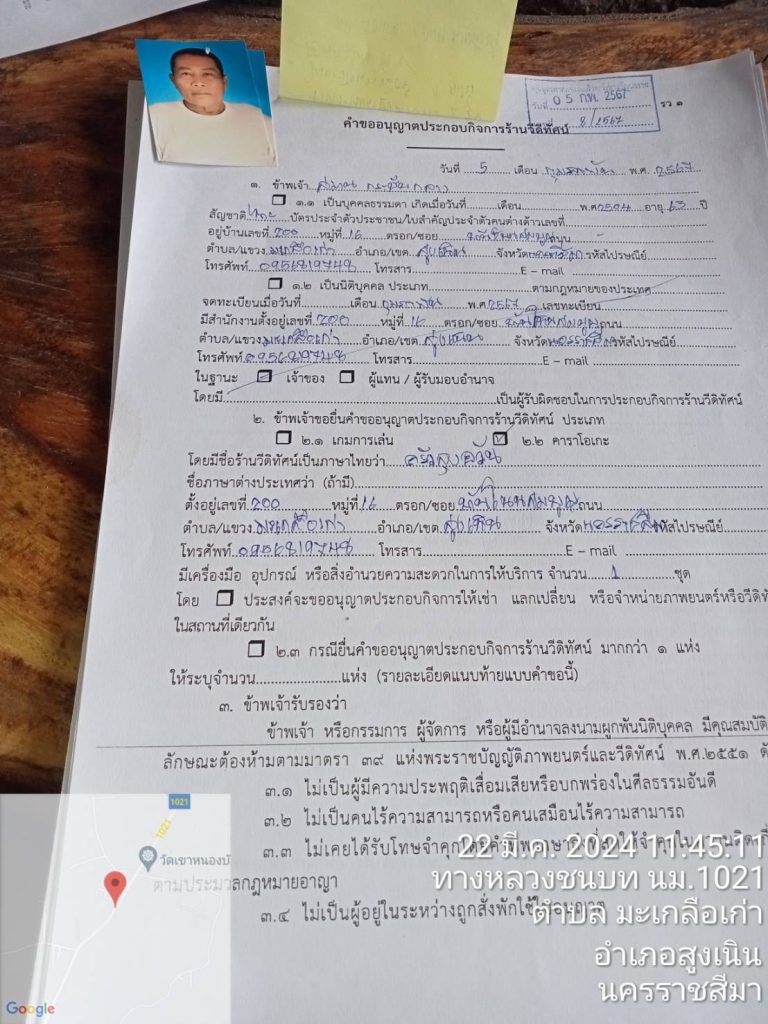 วันที่ 05 ก.พ. 2567
8/2567
รว ๑
คำขออนุญาตประกอบกิจการร้านวีดิทัศน์
วันที่ 5 เดือน กุมภาพันธ์ พ.ศ. 2567
๑. ข้าพเจ้า
๑.๑ เป็นบุคคลธรรมดา เกิดเมื่อวันที่ เดือน พ.ศ. 2504 อายุ 63 ปี
สัญชาติ ไทย บัตรประจำตัวประชาชน/ใบสำคัญประจำตัวคนต่างด้าวเลขที่
อยู่บ้านเลขที่ 200 หมู่ที่ 16 ตรอก/ซอย ถนน
ตำบล/แขวง มะเกลือเก่า อำเภอ/เขต สูงเนิน จังหวัด นครราชสีมา รหัสไปรษณีย์
โทรศัพท์ 0956819748 โทรสาร E – mail
๑.๒ เป็นนิติบุคคล ประเภท ตามกฎหมายของประเทศ
จดทะเบียนเมื่อวันที่ เดือน กุมภาพันธ์ พ.ศ. 2567 เลขทะเบียน
มีสำนักงานตั้งอยู่เลขที่ 200 หมู่ที่ 16 ตรอก/ซอย ถนน
ตำบล/แขวง มะเกลือเก่า อำเภอ/เขต สูงเนิน จังหวัด นครราชสีมา รหัสไปรษณีย์
โทรศัพท์ 0956819748 โทรสาร E – mail
ในฐานะ เจ้าของ ผู้แทน / ผู้รับมอบอำนาจ
โดยมี เป็นผู้รับผิดชอบในการประกอบกิจการร้านวีดิทัศน์
๒. ข้าพเจ้าขอยื่นคำขออนุญาตประกอบกิจการร้านวีดิทัศน์ ประเภท
๒.๑ เกมการเล่น ๒.๒ คาราโอเกะ
โดยมีชื่อร้านวีดิทัศน์เป็นภาษาไทยว่า
ชื่อภาษาต่างประเทศว่า (ถ้ามี)
ตั้งอยู่เลขที่ 200 หมู่ที่ 16 ตรอก/ซอย ถนน
ตำบล/แขวง มะเกลือเก่า อำเภอ/เขต สูงเนิน จังหวัด นครราชสีมา รหัสไปรษณีย์
โทรศัพท์ 0956819748 โทรสาร E – mail
มีเครื่องมือ อุปกรณ์ หรือสิ่งอำนวยความสะดวกในการให้บริการ จำนวน 1 ชุด
โดย ประสงค์จะขออนุญาตประกอบกิจการให้เช่า แลกเปลี่ยน หรือจำหน่ายภาพยนตร์หรือวีดิทั
ในสถานที่เดียวกัน
๒.๓ กรณียื่นคำขออนุญาตประกอบกิจการร้านวีดิทัศน์ มากกว่า ๑ แห่ง
ให้ระบุจำนวน แห่ง (รายละเอียดแนบท้ายแบบคำขอนี้)
๓. ข้าพเจ้ารับรองว่า
ข้าพเจ้า หรือกรรมการ ผู้จัดการ หรือผู้มีอำนาจลงนามผูกพันนิติบุคคล มีคุณสมบัติ
ลักษณะต้องห้ามตามมาตรา ๓๙ แห่งพระราชบัญญัติภาพยนตร์และวีดิทัศน์ พ.ศ.๒๕๕๑
๓.๑ ไม่เป็นผู้มีความประพฤติเสื่อมเสียหรือบกพร่องในศีลธรรมอันดี
๓.๒ ไม่เป็นคนไร้ความสามารถหรือคนเสมือนไร้ความสามารถ
๓.๓ ไม่เคยได้รับโทษจำคุก
ตามประมวลกฎหมายอาญา
๓.๔ ไม่เป็นผู้อยู่ในระหว่างถูกสั่งพักใช้ใบอนุญาต
1021
1021
วัดเขาหนองบั
Google
22 มี.ค. 2024 11:45:11
ทางหลวงชนบท นม.1021
ตำบล มะเกลือเก่า
อำเภอสูงเนิน
นครราชสีมา